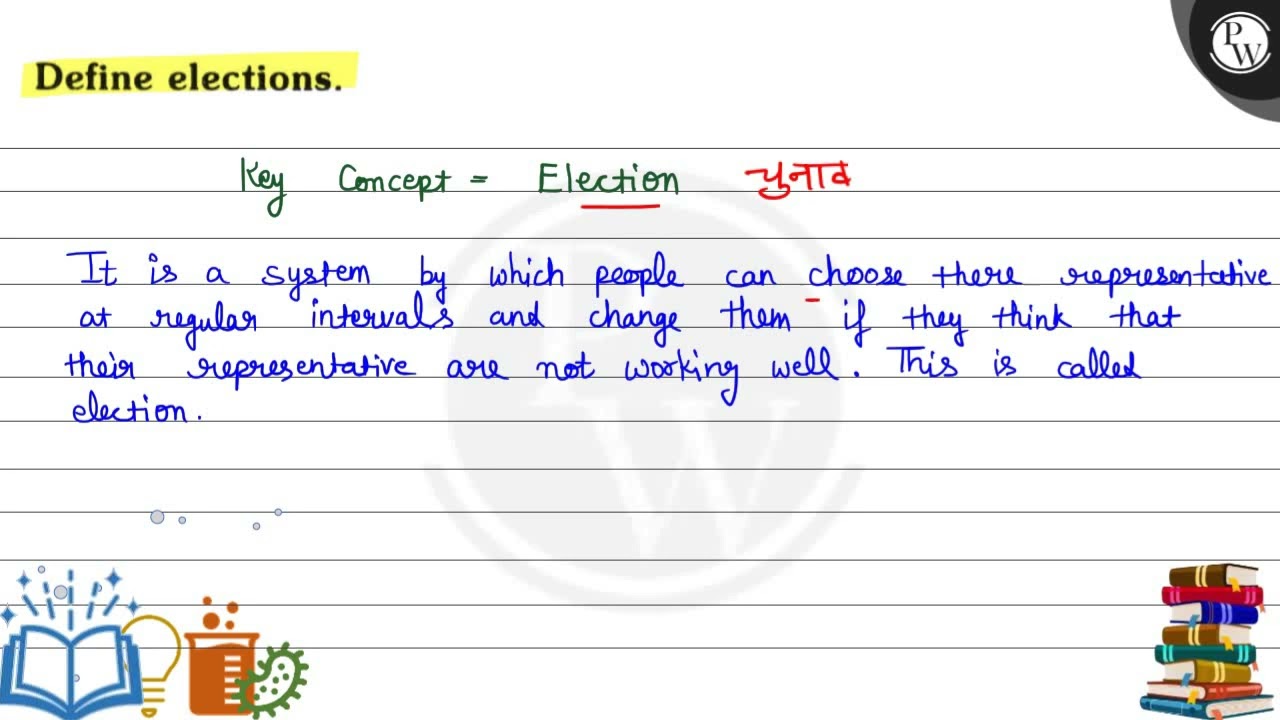 Define elections.
PW
Key Concept = Election चुनाव
It is a system by which people can choose there representative
at regular intervals and change them if they think that
their representative are not working well. This is called
election.
PW